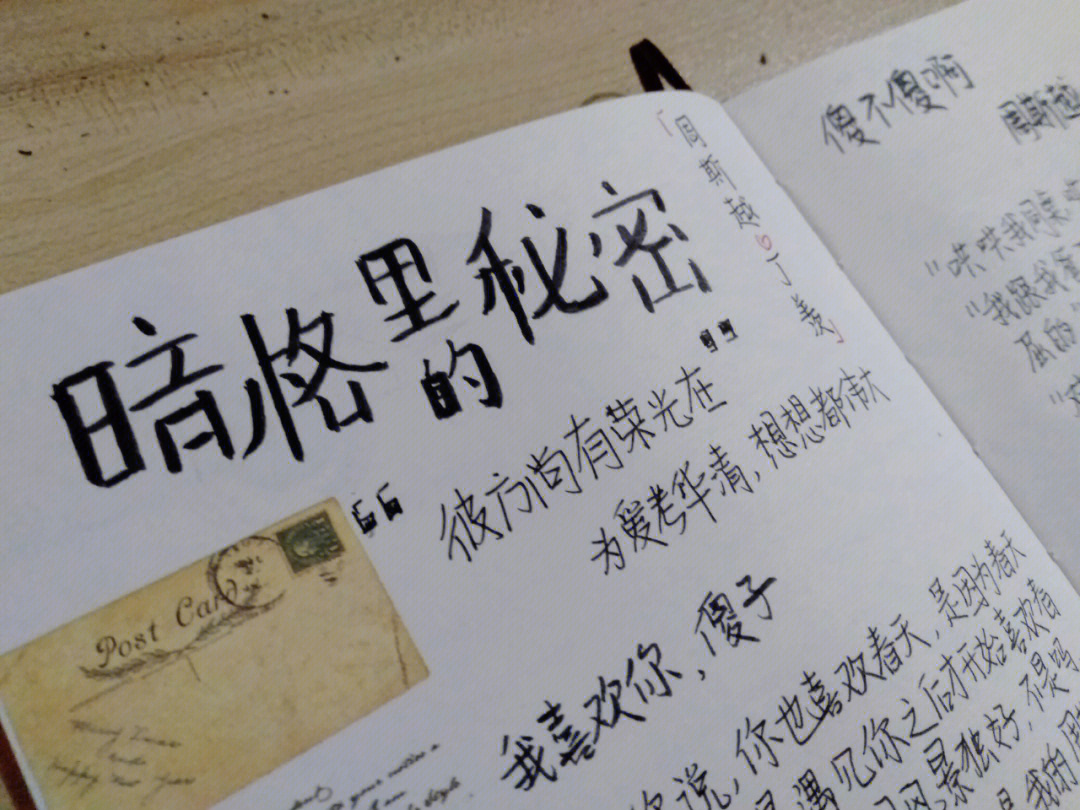 暗格里的秘密
「周斯越♡丁羡」
“彼方尚有荣光在”
为爱考华清,想想都伟大
我喜欢你,傻子
说,你也喜欢春天,是因为春天
遇见你之后才开始喜欢春
风景独好,不是吗
Post Card
傻不傻啊
周斯越
"哄哄我同桌
"我跟我